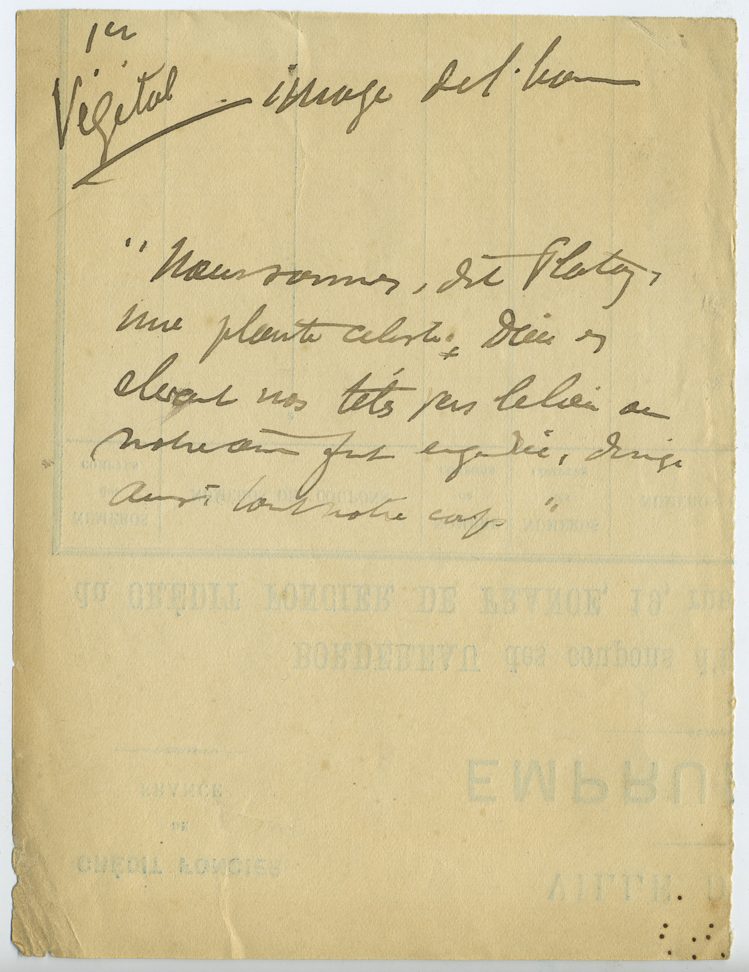 1er
Végétal - image de l'hom
"Nous sommes, dit Platon,
une plante céleste. Dieu en
élevant nos têtes vers le lieu où
notre âme fut engendrée, dirige
ainsi tout notre corps"
NUMÉROS
du CRÉDIT FONCIER DE FRANCE, 19, rue
BORDEREAU des coupons d'
EMPRU
FRANCE
DE
CRÉDIT FONCIER
VILLE D